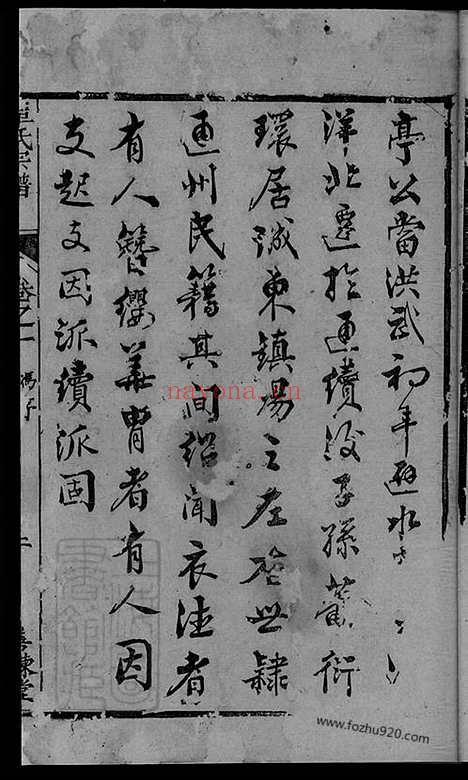 亭公當洪武初年避水
洋北遷於通續後子孫蕃衍
環居城東鎮場之左右世隸
通州民籍其間紹聞衣德者
有人簪纓華胄者有人因
支起支因派續派固
氏宗譜
卷之一
二
navona.cn
www.fozhu920.com